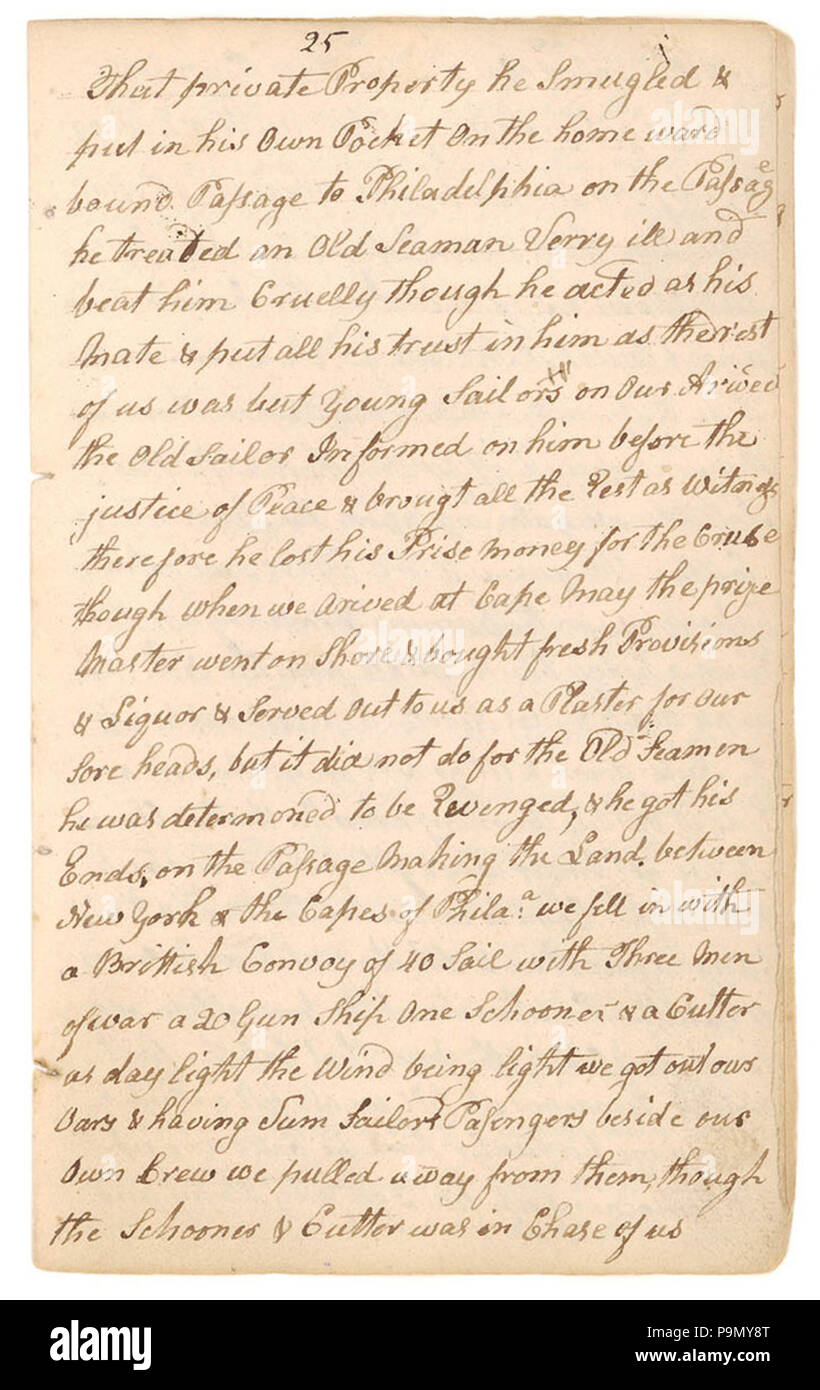 25
That private Property he Smugled &
put in his Own Pocket On the home ward
bound Passage to Philadelphia on the Passage
he treated an Old Seaman Verry ill and
beat him Cruelly though he acted as his
Mate & put all his trust in him as the rest
of us was but Young Sailors on Our Arived
the Old Sailor Informed on him before the
justice of Peace & brougt all the Rest as Witness
therefore he lost his Prise money for the Cruse
though when we arived at Cape May the prize
Master went on Shore & bought fresh Provisions
& Liquor & Served Out to us as a Plaster for Our
Sore heads, but it did not do for the Old Seamen
he was determoned to be Revenged, & he got his
Ends, on the Passage Making the Land, between
New York & the Capes of Phila.ᵃ we fell in with
a Brittish Convoy of 40 Sail with Three Men
of war a 20 Gun Ship One Schooner & a Cutter
as day light the Wind being light we got out our
Oars & having Sum Sailors Pasengers beside our
Own Crew we pulled away from them, though
the Schooner & Cutter was in Chase of us
alamy
alamy
alamy
alamy
Image ID: P9MY8T
www.alamy.com